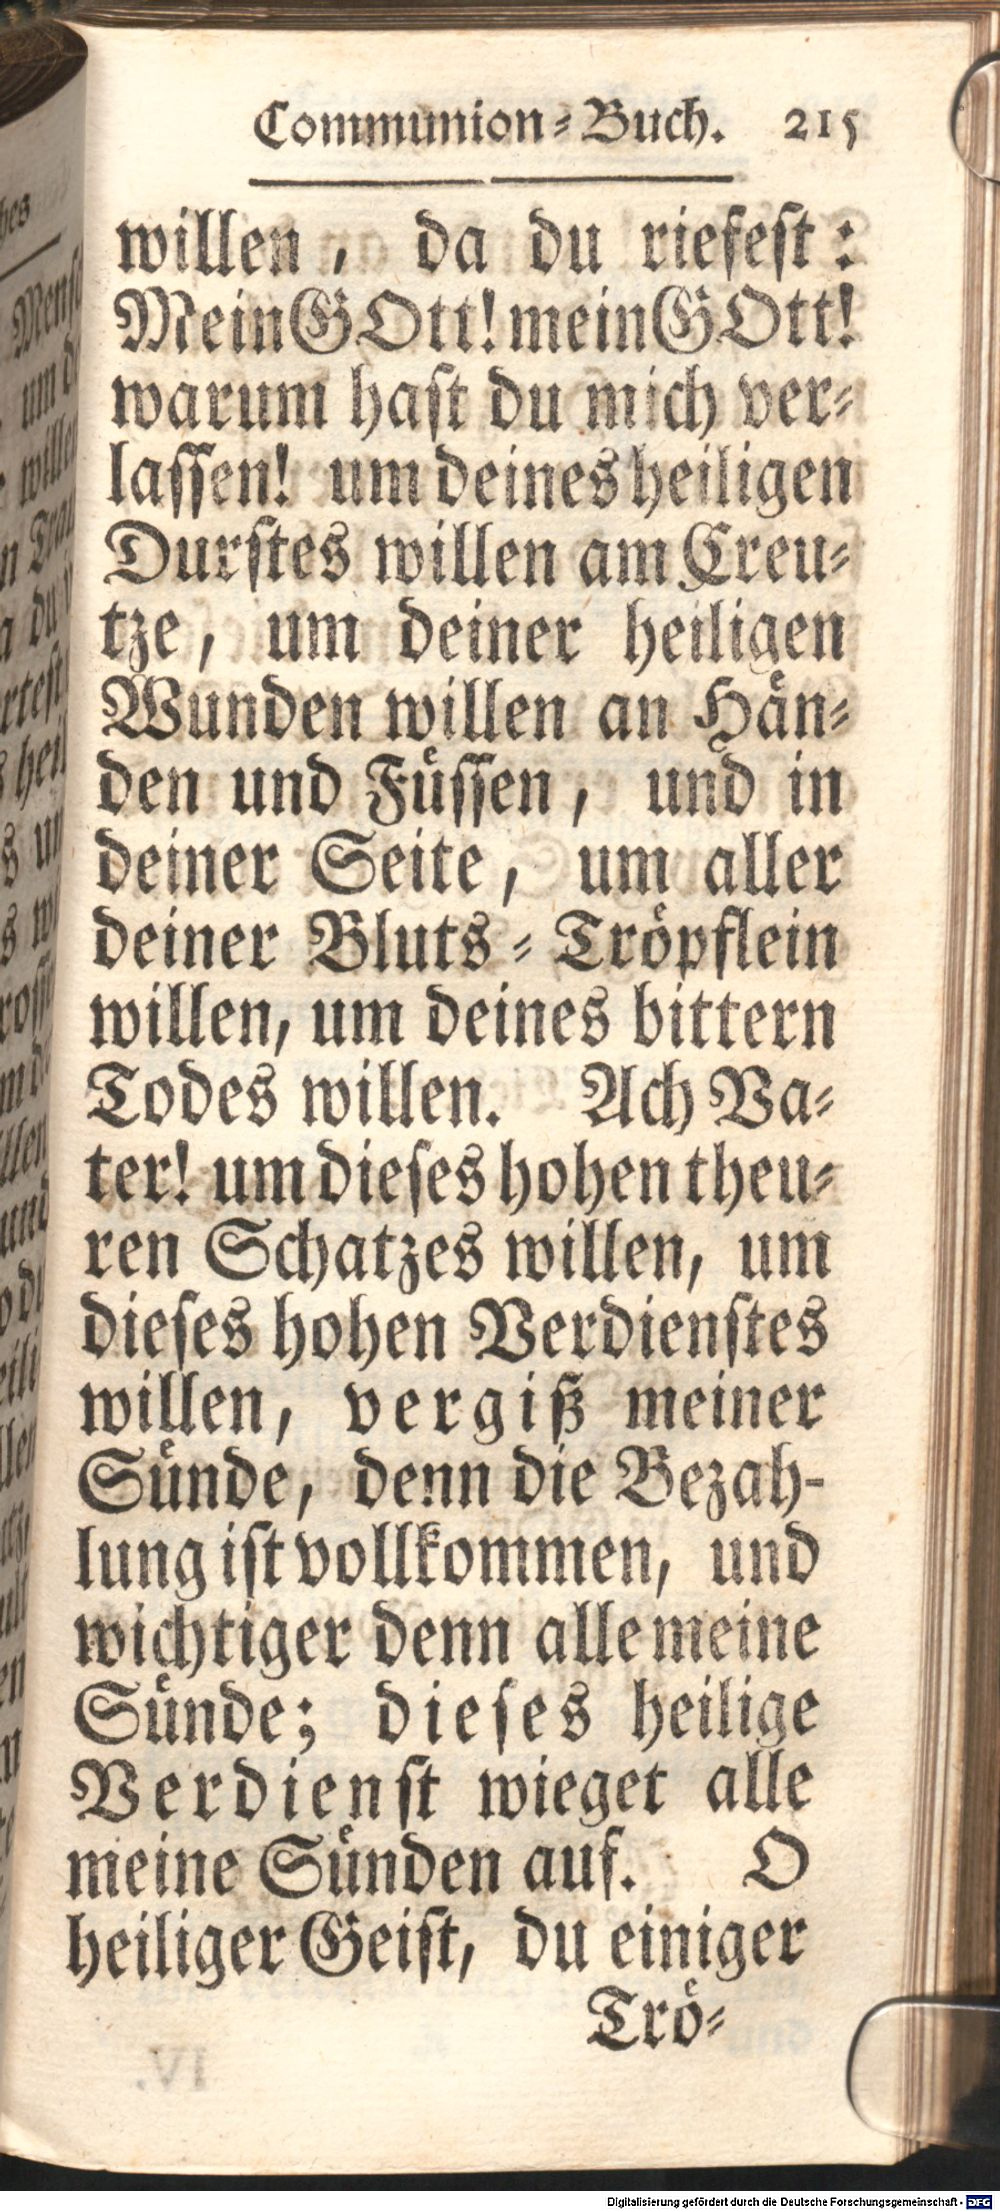 Communion-Buch. 215
willen, da du riefest:
Mein GOtt! mein GOtt!
warum hast du mich ver-
lassen! um deines heiligen
Durstes willen am Creu-
tze, um deiner heiligen
Wunden willen an Hän-
den und Füssen, und in
deiner Seite, um aller
deiner Bluts-Tröpflein
willen, um deines bittern
Todes willen. Ach Va-
ter! um dieses hohen theu-
ren Schatzes willen, um
dieses hohen Verdienstes
willen, vergiß meiner
Sünde, denn die Bezah-
lung ist vollkommen, und
wichtiger denn alle meine
Sünde; dieses heilige
Verdienst wieget alle
meine Sünden auf. O
heiliger Geist, du einiger
Trö-
Digitalisierung gefördert durch die Deutsche Forschungsgemeinschaft - DFG